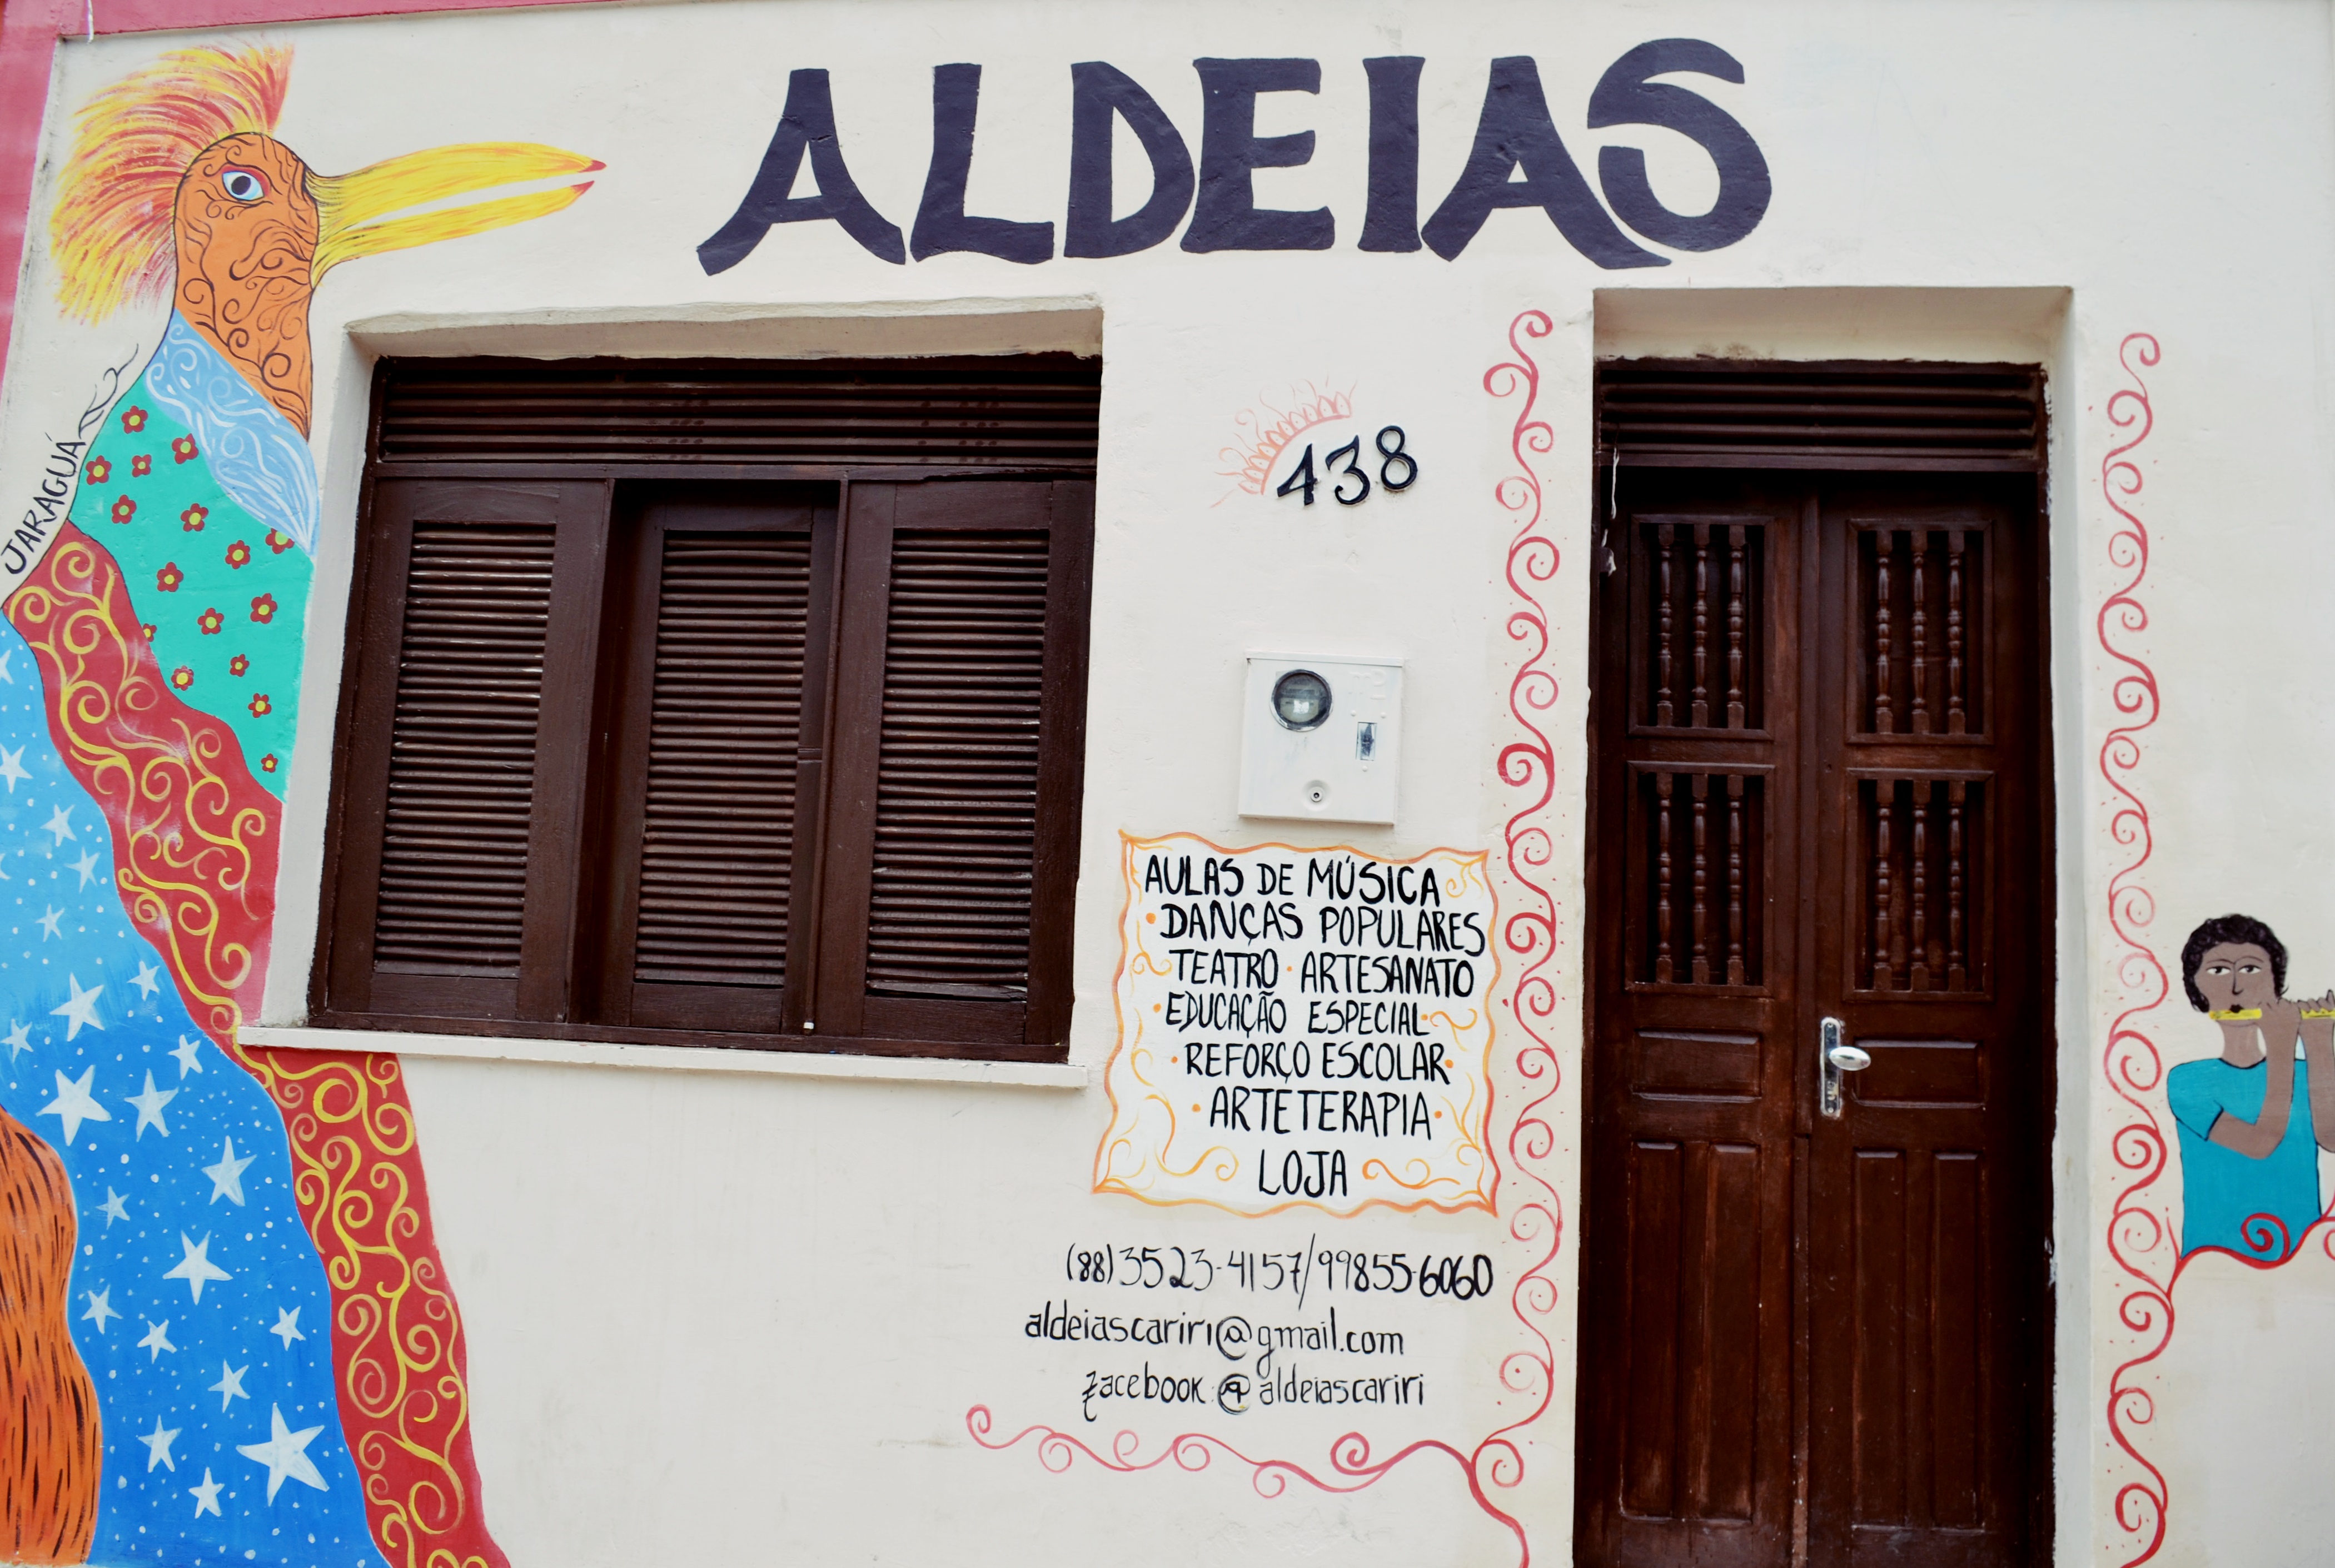 ALDEIAS
JARAGUÁ
438
AULAS DE MÚSICA
• DANÇAS POPULARES
TEATRO • ARTESANATO
• EDUCAÇÃO ESPECIAL •
• REFORÇO ESCOLAR •
• ARTETERAPIA •
LOJA
(88) 3523-4157/99855-6060
aldeiascariri@gmail.com
facebook: @aldeiascariri